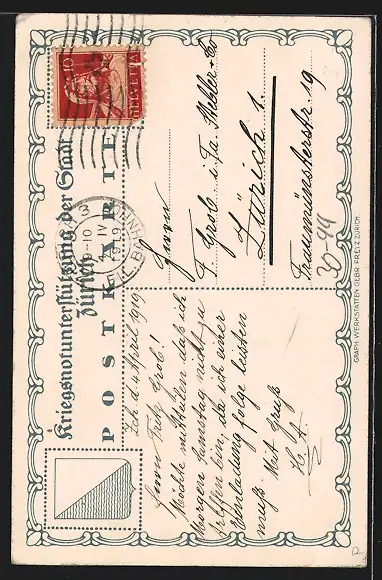 Kriegsnotunterstützung der Stadt
Zürich
POSTKARTE
10
HELVETIA
9-10
IV
1919
Zch d. 4 April 1919
Herrn Fritz Grob!
Möchte mitteilen daß ich
Morgen Samstag nicht zu
treffen bin, da ich einer
Einladung folge leisten
muß. Mit Gruß
Herrn
F. Grob i. Fa.
Zürich 1.
Fraumünsterstr. 19
GRAPH. WERKSTÄTTEN GEBR. FRETZ ZÜRICH